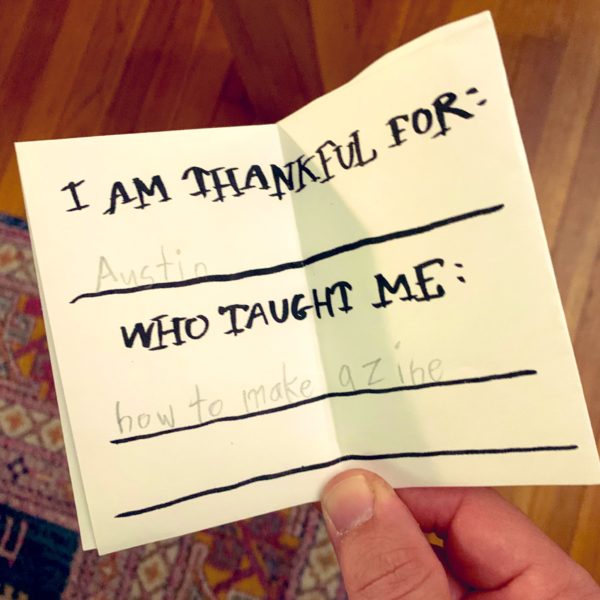 I AM THANKFUL FOR:
Austin
WHO TAUGHT ME:
how to make a zine